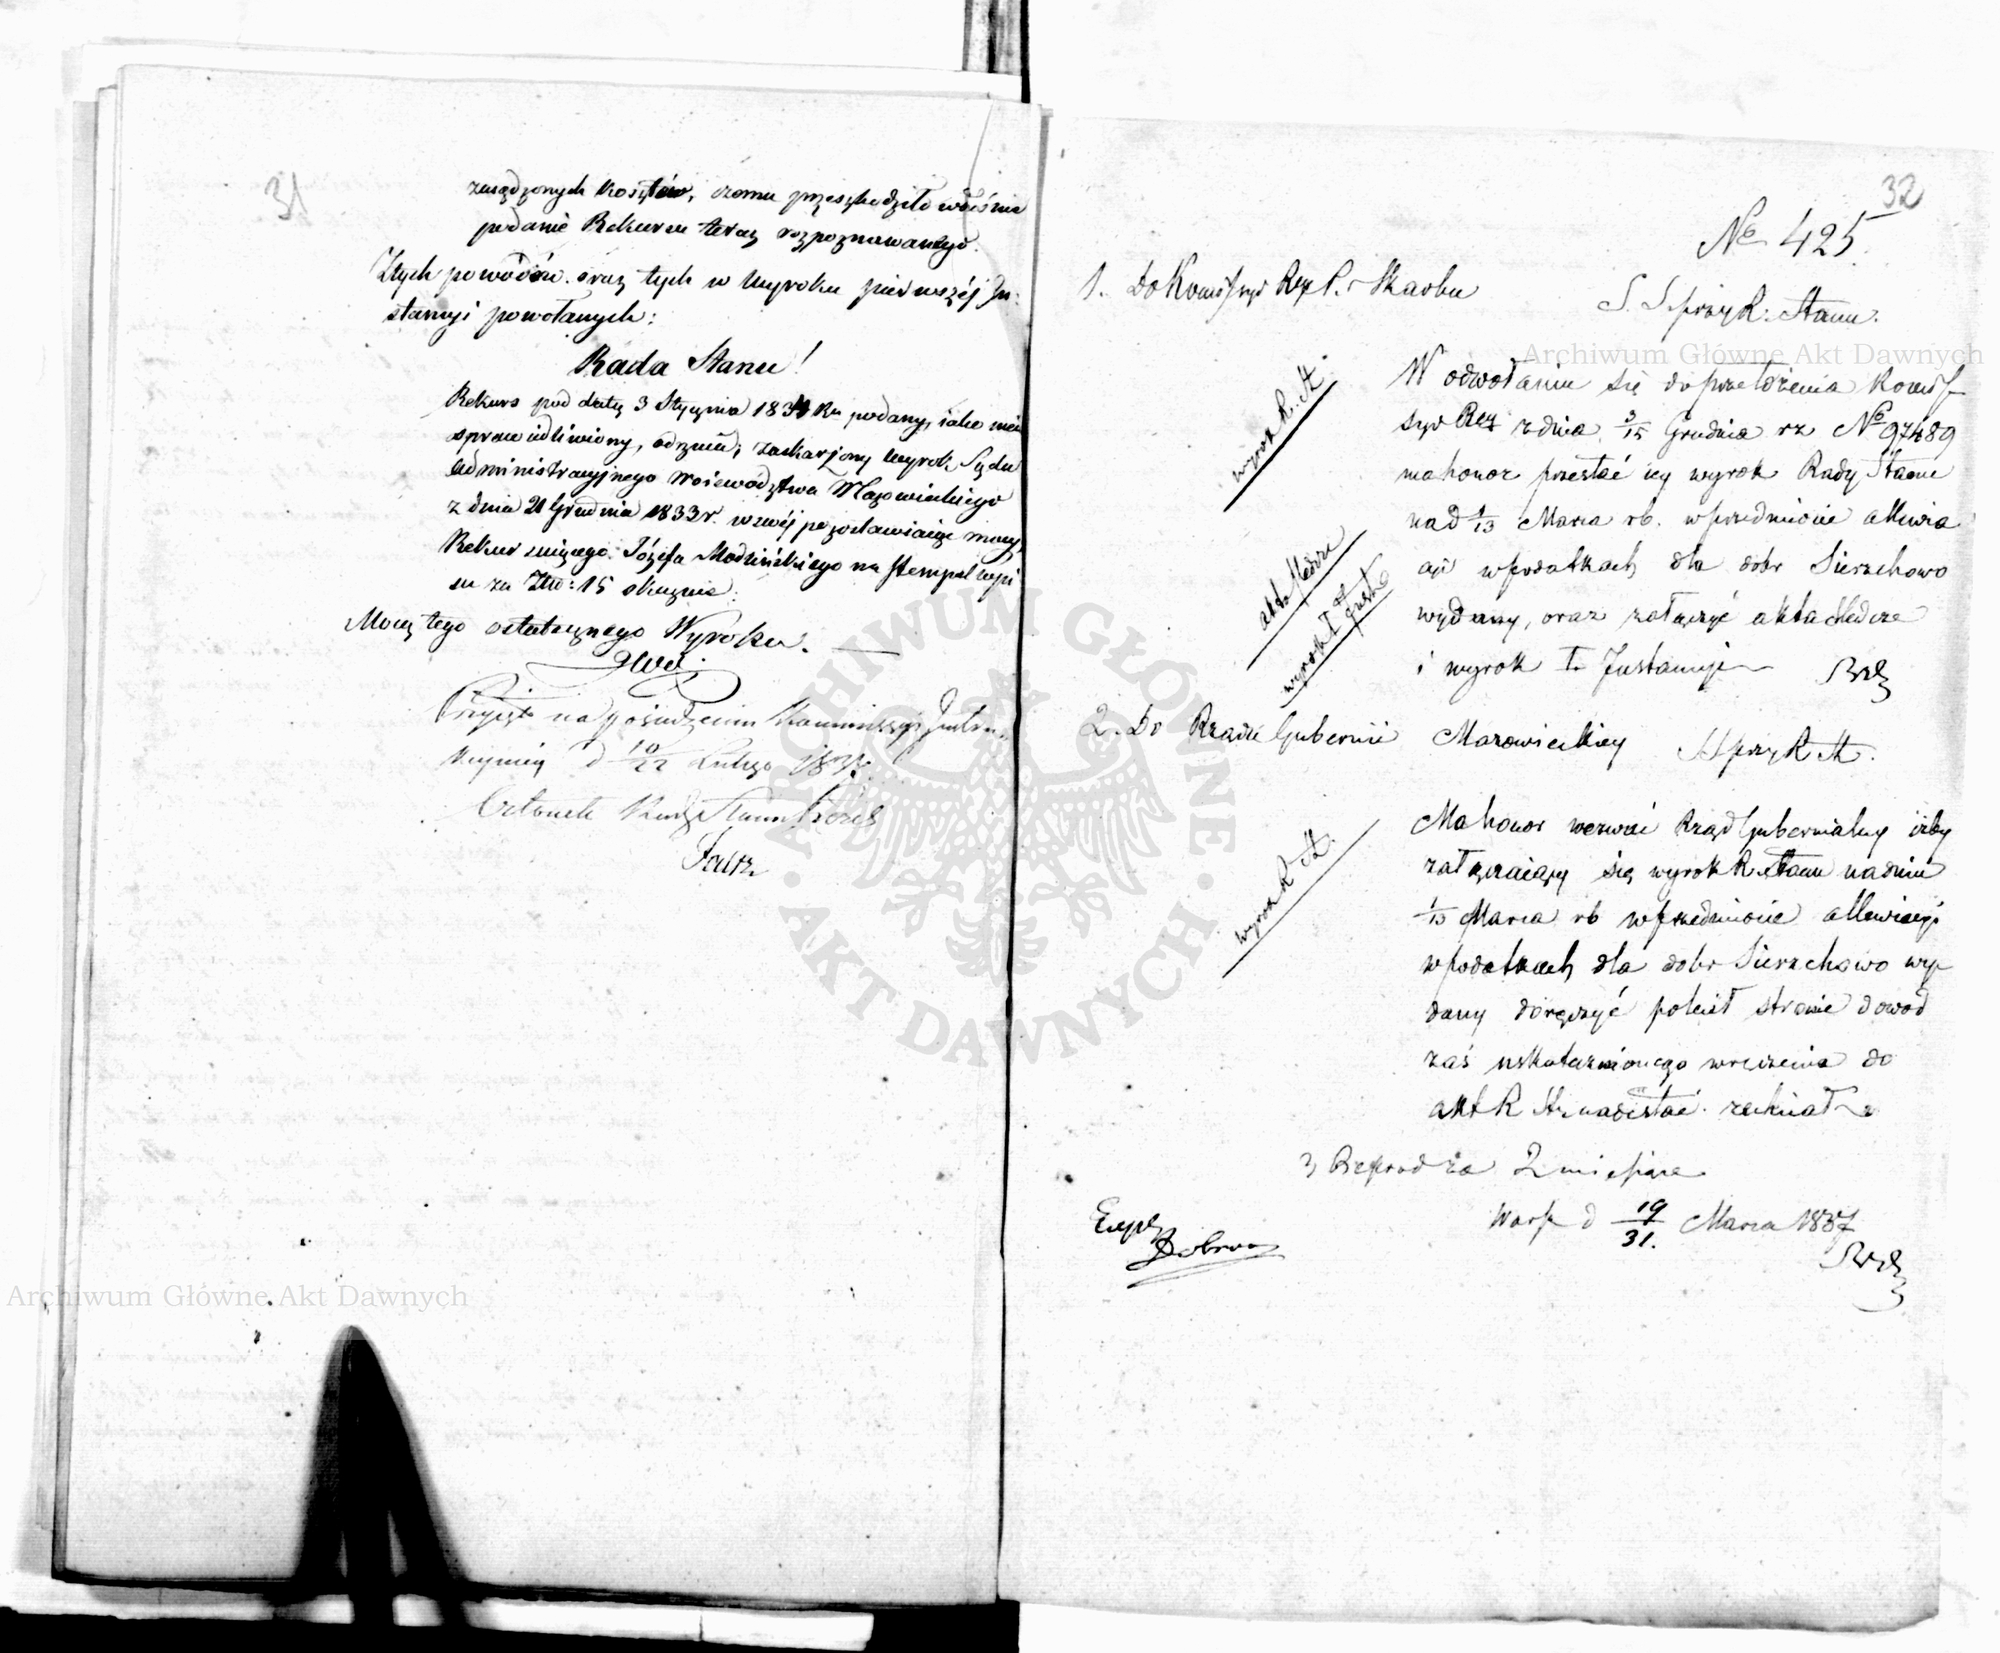 31
zasądzonych kosztów, czemu przeszkodziło właśnie
podanie Rekursu teraz rozpoznawanego.
Z tych powodów oraz tych w Wyroku pierwszéj In:
stancyi powołanych:
Rada Stanu!
Rekurs pod datą 3 Stycznia 1834 Ru podany, iako nie
sprawiedliwiony, odrzuca; zaskarżony wyrok Sądu
Administracyjnego Województwa Mazowieckiego
z dnia 21 Grudnia 1833 r. w swéj pozostawiaiąc mocy,
Rekurruiącego Józefa Modzińskiego na stempel wpi
su za Złło: 15 skazuie.
Mocą tego ostatecznego Wyroku.
Przyięto na posiedzeniu Kommissyi Instru
kcyiney d 10/22 Lutego 1837.
Członek Rady Stanu
32
No 425
1. Do Komissyi Rzą P. i Skarbu
S. Sprzy R. Stanu.
wyrok R. St.
W odwołaniu się do przełożenia Komis
syi Rzą z dnia 3/15 Grudnia rz No 97489
ma honor przesłać iey wyrok Rady Stanu
nad 1/13 Marca rb. w przedmiocie allewia
cyi w podatkach dla dobr Sierzchowo
wydany, oraz załączyć akta śledcze
i wyrok I. Instancyi
akta śledcze
wyrok I Inst
2. Do Rządu Gubernii Mazowieckiey
S Sprzy R St.
wyrok R St.
Ma honor wezwać Rząd Gubernialny iżby
załączaiący się wyrok R. Stanu na dniu
1/13 Marca rb w przedmiocie allewiacyi
w podatkach dla dobr Sierzchowo wy
dany doręczyć polecił stronie dowod
zaś uskutecznionego wręczenia do
akt R St. nadesłać zechciał
3, Reprod za 2 miesiące
Warsz d 19/31. Marca 1837
Exped
Archiwum Główne Akt Dawnych
Archiwum Główne Akt Dawnych
ARCHIWUM GŁÓWNE
AKT DAWNYCH